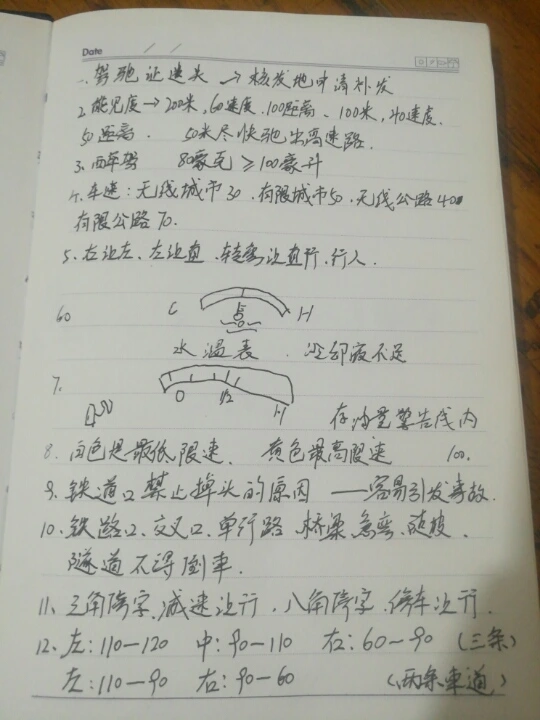 Date / /
1. 驾驰证遗失 → 核发地申请补发
2. 能见度→200米,60速度.100距离、100米,40速度.
50距离. 50米尽快驰出高速路.
3. 醉驾 80毫克≥100毫升
4. 车速:无线城市30.有限城市50.无线公路40
有限公路70.
5. 右让左、左让直、转弯让直行、行人.
6. C H
水温表.冷却液不足
7. 0 1/2 H
存油量警告线内
8. 白色是最低限速. 黄色最高限速 100.
9. 铁道口禁止掉头的原因 ——容易引发事故.
10、铁路口、交叉口、单行路、桥梁、急弯、陡坡、
隧道不得倒车.
11、三角停字,减速让行,八角停字,停车让行.
12、左:110—120 中:90—110 右:60~90 (三条)
左:110—90 右:90—60 (两条车道)